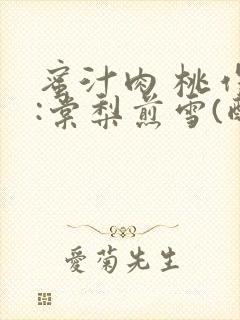 蜜汁肉桃作
:棠梨煎雪(酥
愛菊先生